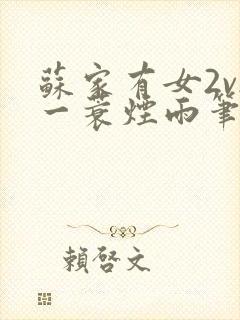 蘇家有女2v
一蓑煙雨筆
賴啓文